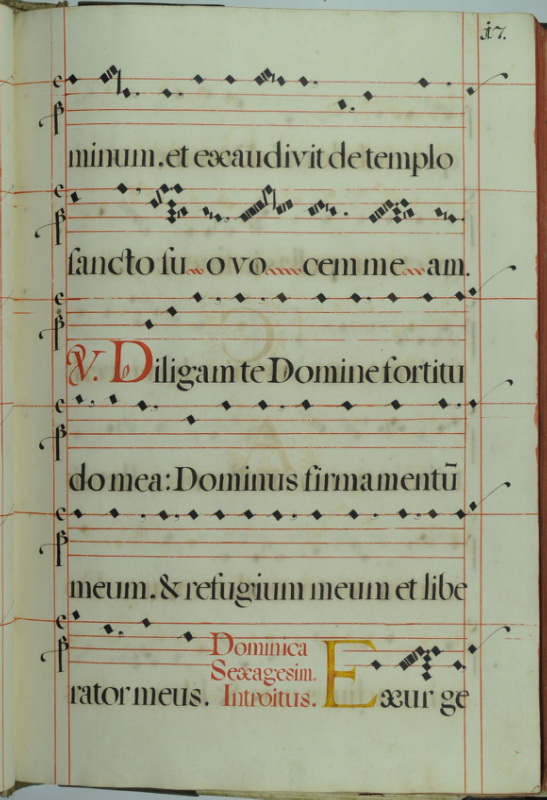 17.
minum, et exaudivit de templo
sancto su o vo cem me am.
V. Diligam te Domine fortitu
do mea: Dominus firmamentū
meum. & refugium meum et libe
rator meus.
Dominica
Sexagesim.
Introitus.
Exur ge